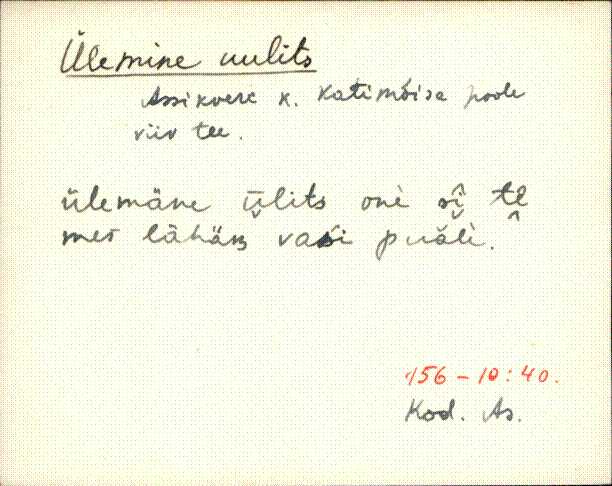 Ülemine uulits
Assikvere k. Katimõisa poole
viiv tee.
ülemäne ūlits onè sî tê
mes lähäb vasi puălè.
156 – 10 : 40.
Kod. As.